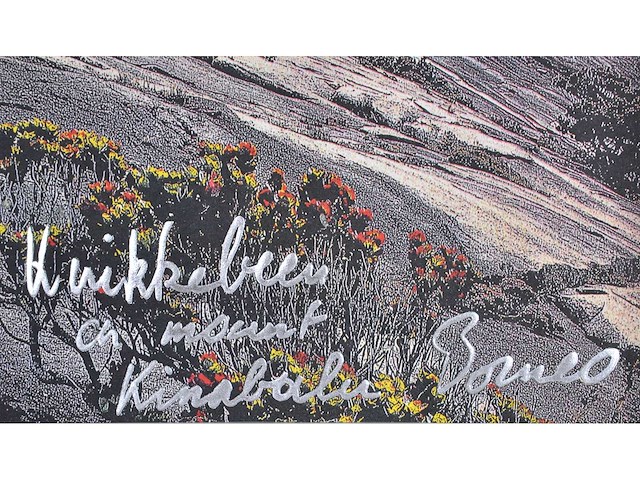 Knikkebeen
on mount
Kinabalu Borneo